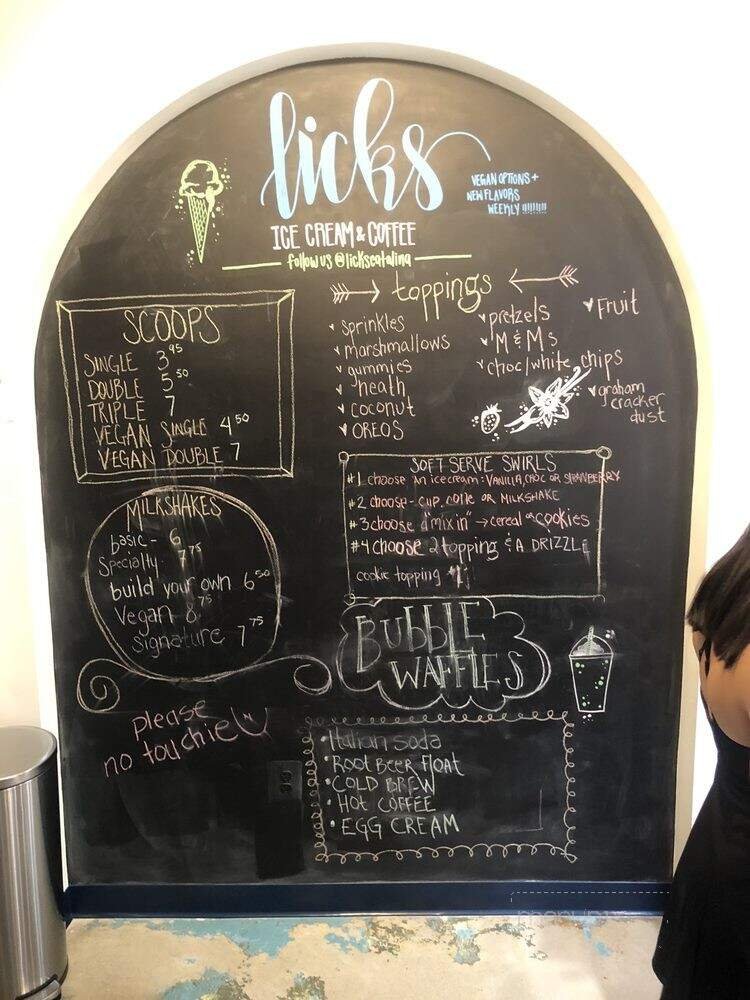 licks
ICE CREAM & COFFEE
follow us @lickscatalina
VEGAN OPTIONS +
NEW FLAVORS
WEEKLY !!!!!!!!
SCOOPS
SINGLE 3.95
DOUBLE 5.50
TRIPLE 7
VEGAN SINGLE 4.50
VEGAN DOUBLE 7
toppings
sprinkles
marshmallows
gummies
heath
coconut
OREOS
pretzels
M & Ms
choc/white chips
Fruit
graham
cracker
dust
MILKSHAKES
basic - 6
Specialty 7.75
build your own 6.50
Vegan 8.75
signature 7.75
SOFT SERVE SWIRLS
#1 choose an ice cream: VANILLA, CHOC OR STRAWBERRY
#2 choose - cup, cone OR MILKSHAKE
#3 choose a "mix in" → cereal or cookies
#4 choose 2 topping & A DRIZZLE
cookie topping $1
BUBBLE
WAFFLES
please
no touchie
Italian Soda
ROOT BEER FLOAT
COLD BREW
HOT COFFEE
EGG CREAM